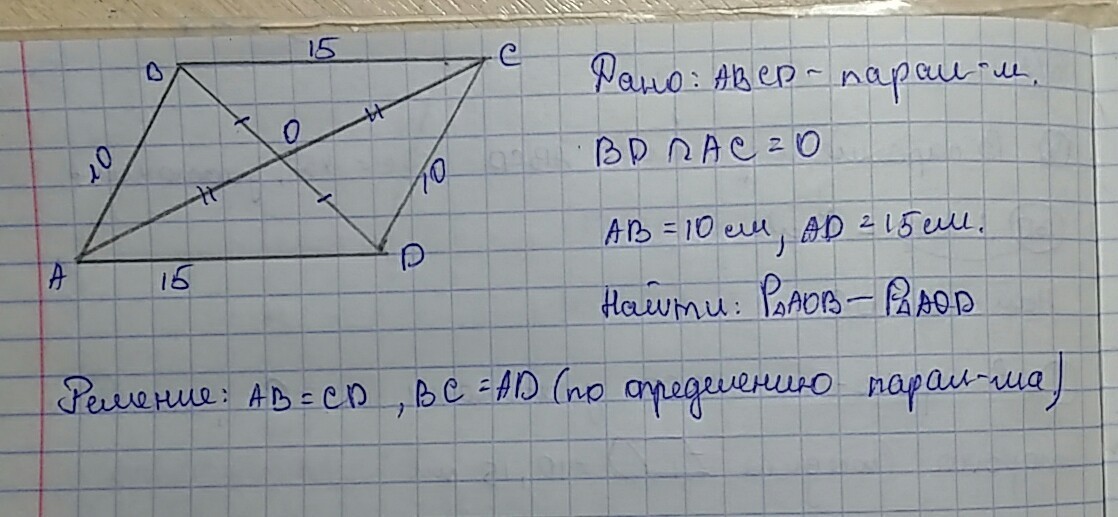 15
B
C
Дано: ABCD - парал-м.
O
10
10
BD ∩ AC = O
AB = 10 см, AD = 15 см.
A
15
D
Найти: P△AOB - P△AOD
Решение: AB = CD, BC = AD (по определению парал-ма)